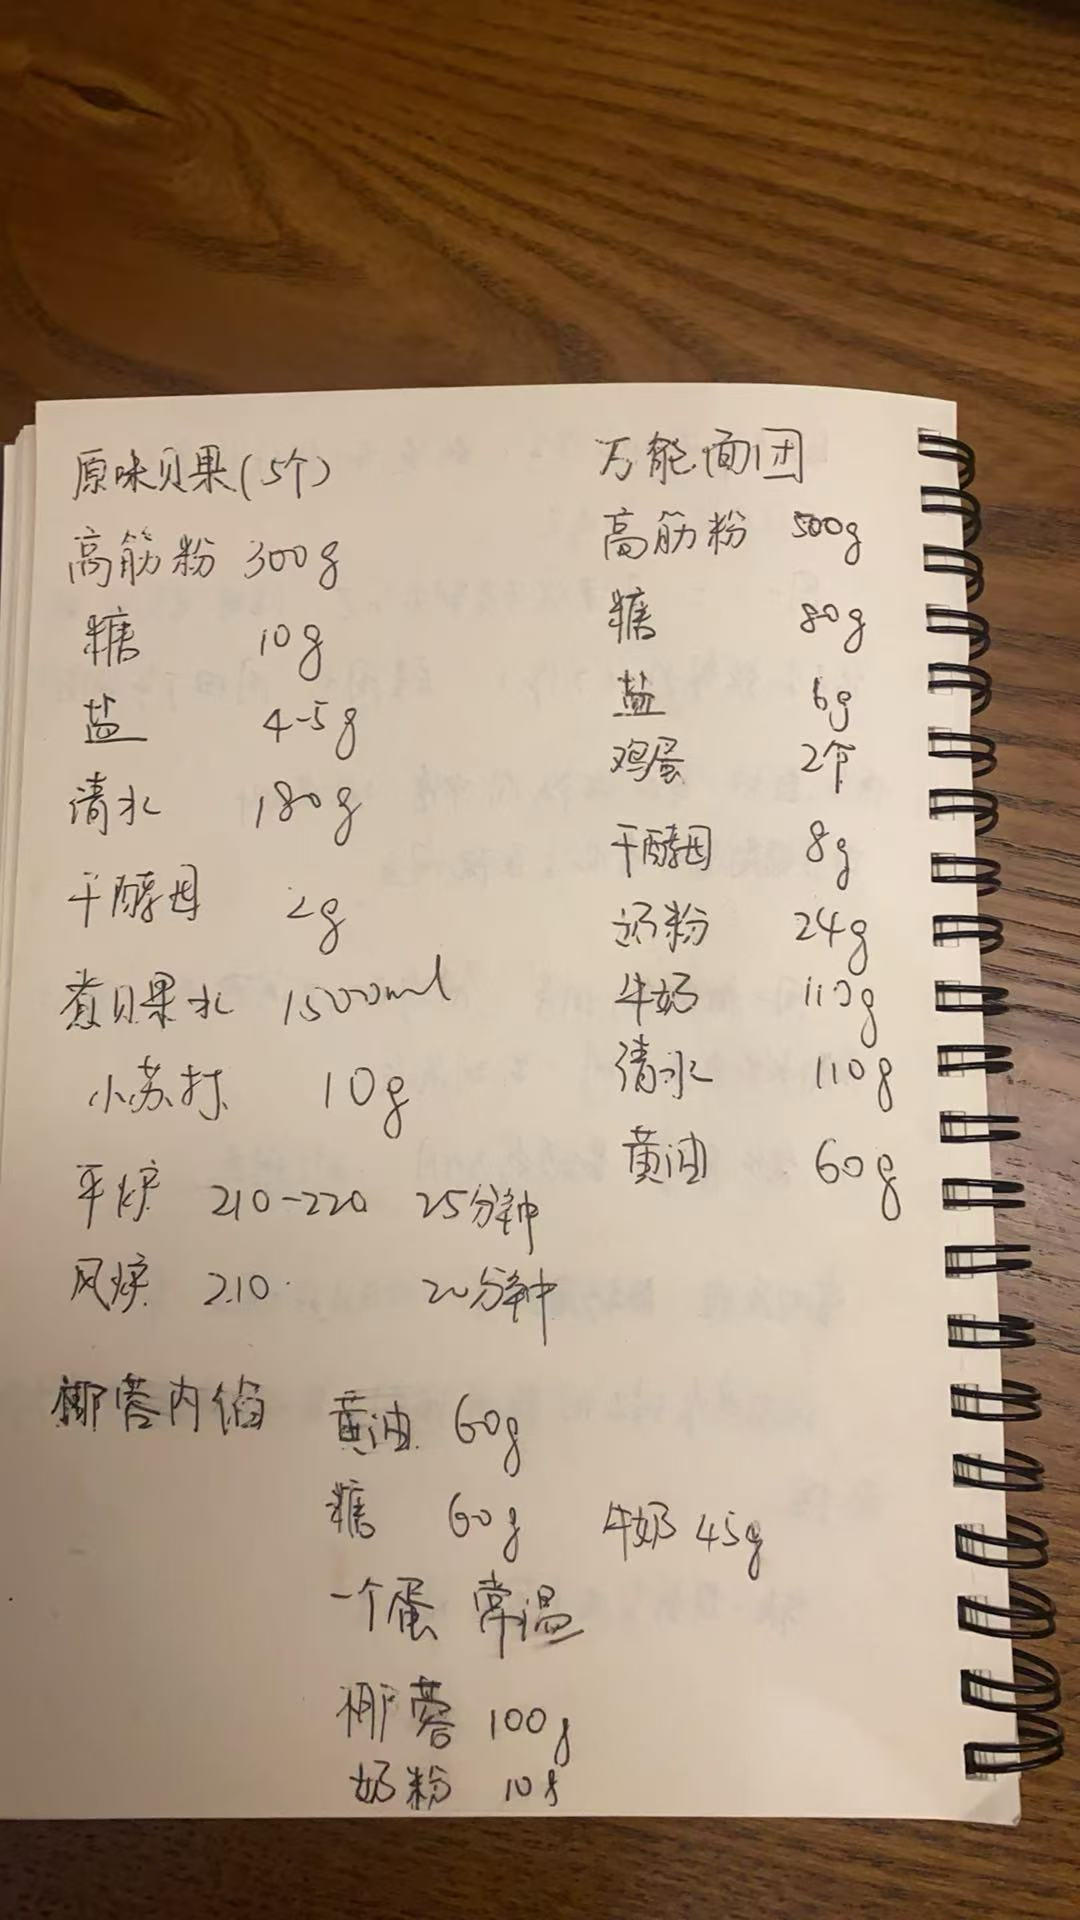 原味贝果(5个)
高筋粉 300g
糖 10g
盐 4-5g
清水 180g
干酵母 2g
煮贝果水 1500ml
小苏打 10g
平炉 210-220 25分钟
风炉 210 20分钟
万能面团
高筋粉 500g
糖 80g
盐 6g
鸡蛋 2个
干酵母 8g
奶粉 24g
牛奶 110g
清水 110g
黄油 60g
椰蓉内馅
黄油 60g
糖 60g 牛奶 45g
一个蛋 常温
椰蓉 100g
奶粉 10g